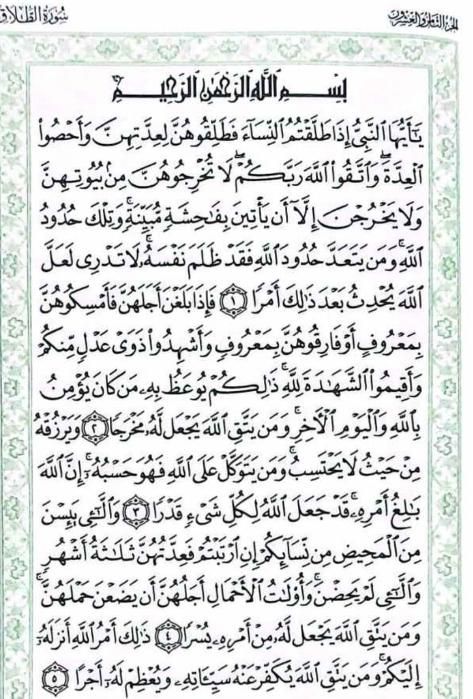 سُورَةُ الطَّلَاقِ
الجزء الثامن والعشرون
بِسْمِ اللَّهِ الرَّحْمَٰنِ الرَّحِيمِ
يَٰٓأَيُّهَا النَّبِىُّ إِذَا طَلَّقْتُمُ النِّسَآءَ فَطَلِّقُوهُنَّ لِعِدَّتِهِنَّ وَأَحْصُوا۟
الْعِدَّةَ ۖ وَاتَّقُوا۟ اللَّهَ رَبَّكُمْ ۖ لَا تُخْرِجُوهُنَّ مِنۢ بُيُوتِهِنَّ
وَلَا يَخْرُجْنَ إِلَّآ أَن يَأْتِينَ بِفَٰحِشَةٍ مُّبَيِّنَةٍ ۚ وَتِلْكَ حُدُودُ
اللَّهِ ۚ وَمَن يَتَعَدَّ حُدُودَ اللَّهِ فَقَدْ ظَلَمَ نَفْسَهُۥ ۚ لَا تَدْرِى لَعَلَّ
اللَّهَ يُحْدِثُ بَعْدَ ذَٰلِكَ أَمْرًا ١ فَإِذَا بَلَغْنَ أَجَلَهُنَّ فَأَمْسِكُوهُنَّ
بِمَعْرُوفٍ أَوْ فَارِقُوهُنَّ بِمَعْرُوفٍ وَأَشْهِدُوا۟ ذَوَىْ عَدْلٍ مِّنكُمْ
وَأَقِيمُوا۟ الشَّهَٰدَةَ لِلَّهِ ۚ ذَٰلِكُمْ يُوعَظُ بِهِۦ مَن كَانَ يُؤْمِنُ
بِاللَّهِ وَالْيَوْمِ الْءَاخِرِ ۚ وَمَن يَتَّقِ اللَّهَ يَجْعَل لَّهُۥ مَخْرَجًا ٢ وَيَرْزُقْهُ
مِنْ حَيْثُ لَا يَحْتَسِبُ ۚ وَمَن يَتَوَكَّلْ عَلَى اللَّهِ فَهُوَ حَسْبُهُۥٓ ۚ إِنَّ اللَّهَ
بَٰلِغُ أَمْرِهِۦ ۚ قَدْ جَعَلَ اللَّهُ لِكُلِّ شَىْءٍ قَدْرًا ٣ وَالَّٰٓـِٔى يَئِسْنَ
مِنَ الْمَحِيضِ مِن نِّسَآئِكُمْ إِنِ ارْتَبْتُمْ فَعِدَّتُهُنَّ ثَلَٰثَةُ أَشْهُرٍ
وَالَّٰٓـِٔى لَمْ يَحِضْنَ ۚ وَأُو۟لَٰتُ الْأَحْمَالِ أَجَلُهُنَّ أَن يَضَعْنَ حَمْلَهُنَّ ۚ
وَمَن يَتَّقِ اللَّهَ يَجْعَل لَّهُۥ مِنْ أَمْرِهِۦ يُسْرًا ٤ ذَٰلِكَ أَمْرُ اللَّهِ أَنزَلَهُۥٓ
إِلَيْكُمْ ۚ وَمَن يَتَّقِ اللَّهَ يُكَفِّرْ عَنْهُ سَيِّـَٔاتِهِۦ وَيُعْظِمْ لَهُۥٓ أَجْرًا ٥